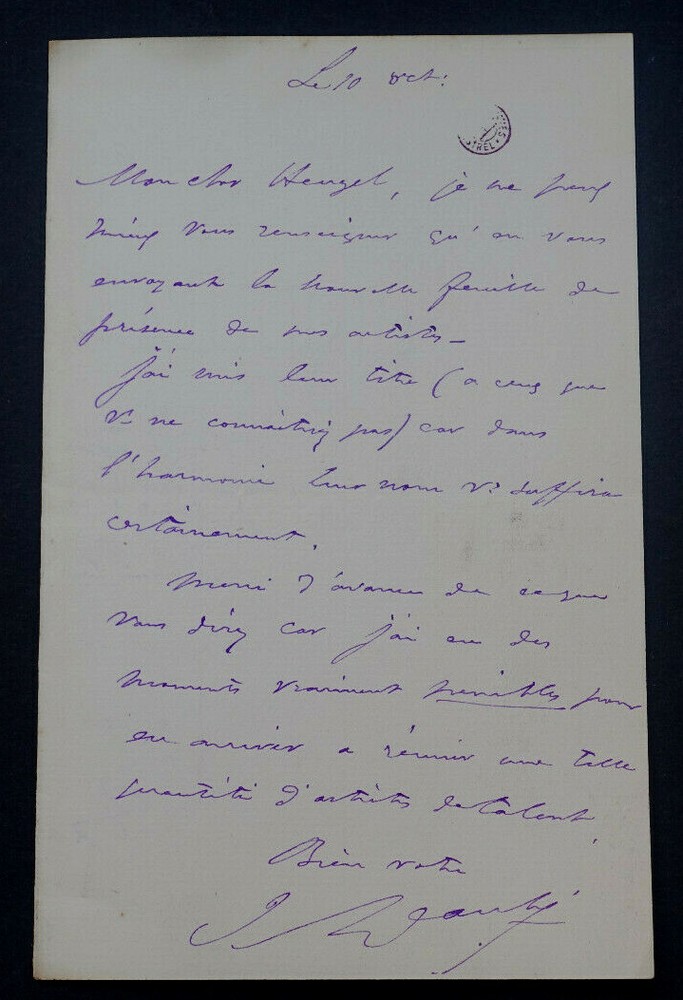 Le 10 Oct:
Mon cher Heugel, je ne peux
mieux vous renseigner qu'en vous
envoyant la nouvelle feuille de
présence de mes artistes_
j'ai mis leur titre (a ceux que
vs ne connaitriez pas) car dans
l'harmonie leur nom vs suffira
certainement.
Merci d'avance de ce que
vous direz car j'ai eu des
moments vraiment pénibles pour
en arriver a réunir une telle
quantité d'artistes de talent.
Bien votre
J Danbé